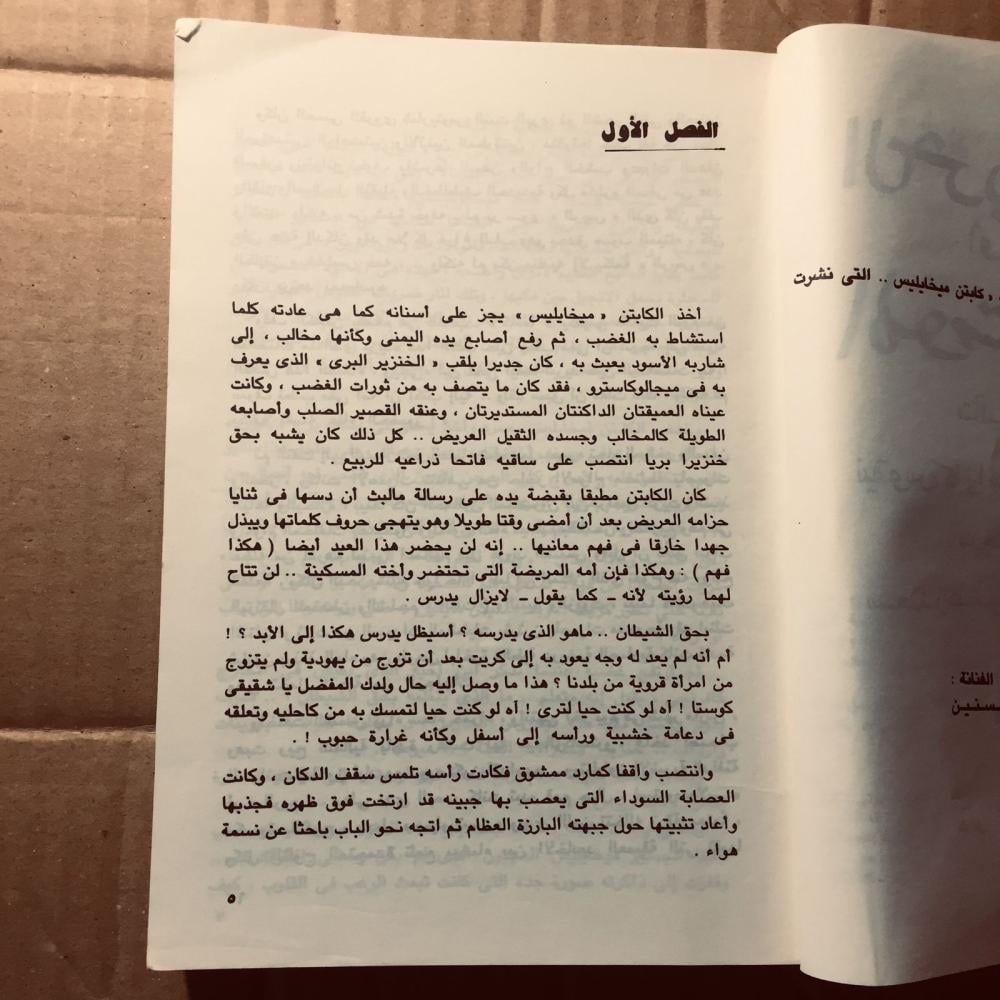 الفصل الأول
أخذ الكابتن « ميخايليس » يجز على أسنانه كما هى عادته كلما
استشاط به الغضب ، ثم رفع أصابع يده اليمنى وكأنها مخالب ، إلى
شاربه الأسود يعبث به ، كان جديرا بلقب « الخنزير البرى » الذى يعرف
به فى ميجالوكاسترو ، فقد كان ما يتصف به من ثورات الغضب ، وكانت
عيناه العميقتان الداكنتان المستديرتان ، وعنقه القصير الصلب وأصابعه
الطويلة كالمخالب وجسده الثقيل العريض .. كل ذلك كان يشبه بحق
خنزيرا بريا انتصب على ساقيه فاتحا ذراعيه للربيع .
كان الكابتن مطبقا بقبضة يده على رسالة مالبث أن دسها فى ثنايا
حزامه العريض بعد أن أمضى وقتا طويلا وهو يتهجى حروف كلماتها ويبذل
جهدا خارقا فى فهم معانيها .. إنه لن يحضر هذا العيد أيضا ( هكذا
فهم ) : وهكذا فإن أمه المريضة التى تحتضر وأخته المسكينة .. لن تتاح
لهما رؤيته لأنه ــ كما يقول ــ لايزال يدرس .
بحق الشيطان .. ماهو الذى يدرسه ؟ أسيظل يدرس هكذا إلى الأبد ؟ !
أم أنه لم يعد له وجه يعود به إلى كريت بعد أن تزوج من يهودية ولم يتزوج
من امرأة قروية من بلدنا ؟ هذا ما وصل إليه حال ولدك المفضل يا شقيقى
كوستا ! أه لو كنت حيا لترى ! أه لو كنت حيا لتمسك به من كاحليه وتعلقه
فى دعامة خشبية ورأسه إلى أسفل وكأنه غرارة حبوب ! .
وانتصب واقفا كمارد ممشوق فكادت رأسه تلمس سقف الدكان ، وكانت
العصابة السوداء التى يعصب بها جبينه قد ارتخت فوق ظهره فجذبها
وأعاد تثبيتها حول جبهته البارزة العظام ثم اتجه نحو الباب باحثا عن نسمة
هواء .
٥
« كابتن ميخايليس .. التى نشرت
الفنانة :